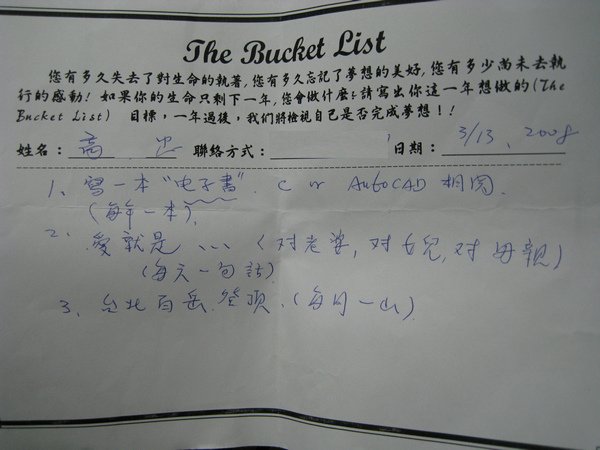 The Bucket List
您有多久失去了對生命的執著,您有多久忘記了夢想的美好,您有多少尚未去執
行的感動! 如果你的生命只剩下一年,您會做什麼?請寫出你這一年想做的(The
Bucket List) 目標,一年過後,我們將檢視自己是否完成夢想!!
姓名: 高 忠 聯絡方式: 日期: 3/13, 2008
1、寫一本"电子書". C or AutoCAD 相関.
(每年一本).
2、愛就是 ... (对老婆,对女兒,对母親)
(每天一句話)
3、台北百岳登顶.(每月一山)